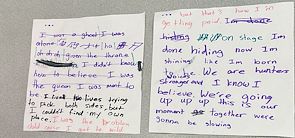 I was a ghost I was
alone
given the throne
I didn't know
how to believe I was
the queen I was ment to
be I lived two lives trying
to Pick both sides but
I couldn't find my own
place. I was the problem
but that's how I'm
getting paid. I'm done
hiding on stage Im
done hiding now Im
shining like Im born
to be We are hunters
and I know I
believe. We're going
up up up this is our
moment together were
gonna be glowing